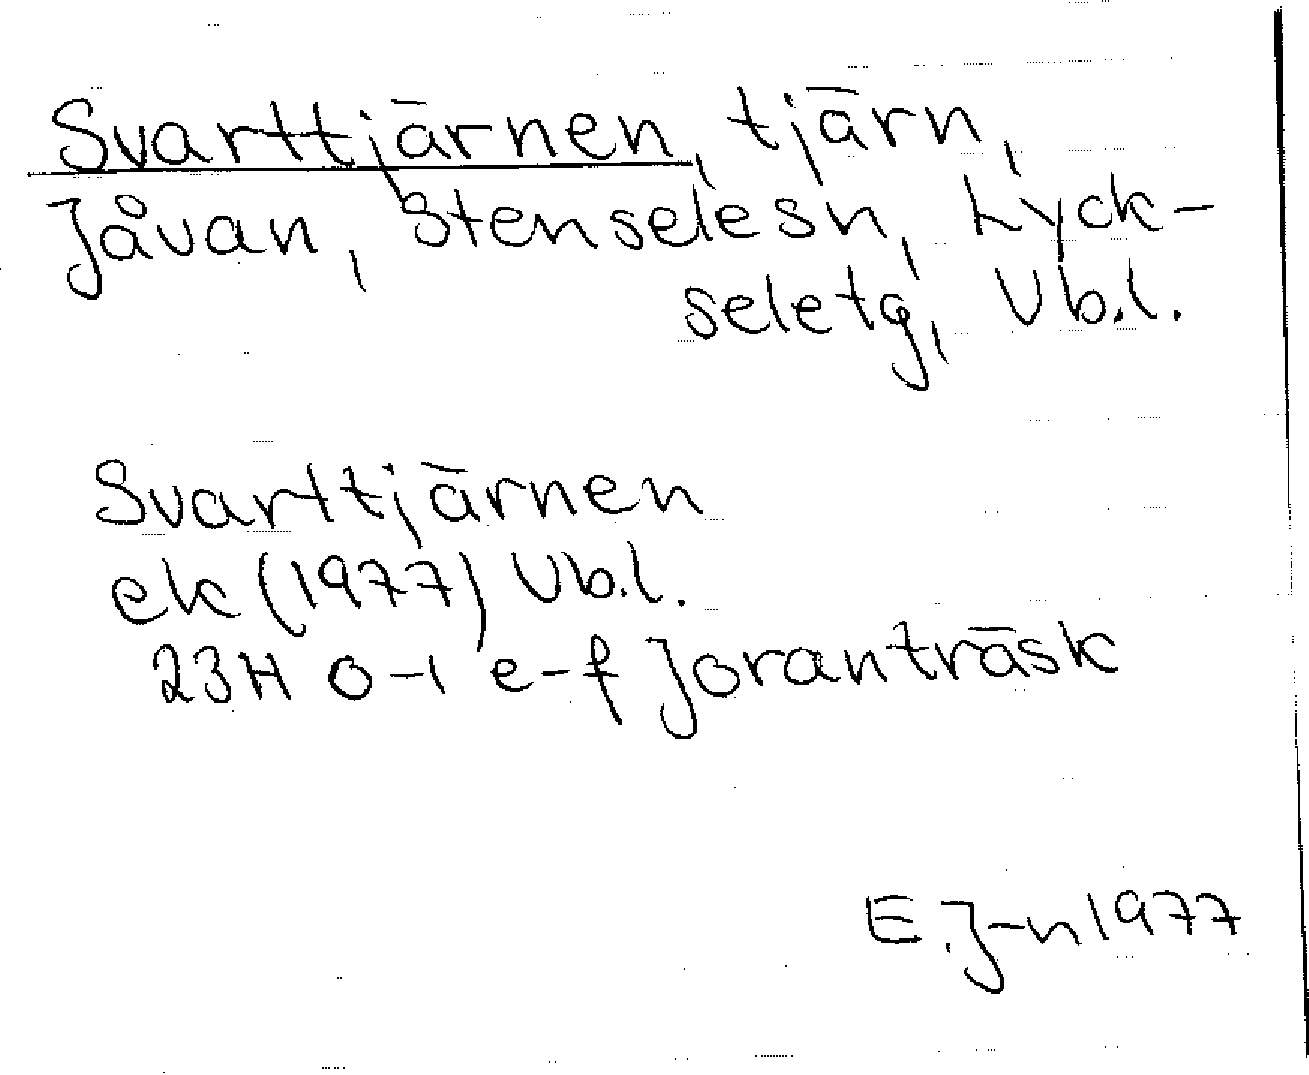 Svarttjärnen, tjärn,
Jåvan, Stenselesn, Lyck-
seletg, Vb.l.
Svarttjärnen
ek (1977) Vb.l.
23H 0-1 e-f Joranträsk
E.J-n 1977